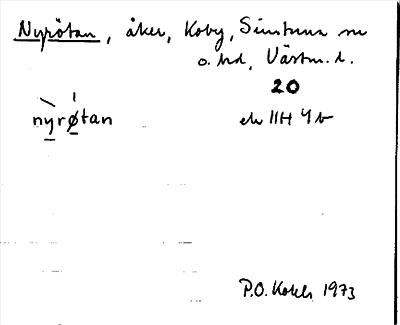 Nyrötan, åker, Koby, Simtuna sn
o. hd, Västm. l.
20
nyrøtan
ek 11H 4 b
P.O. 1973